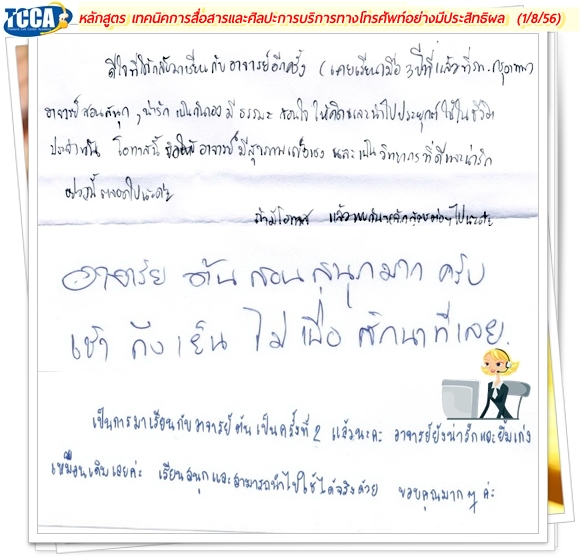 TCCA
หลักสูตร เทคนิคการสื่อสารและศิลปะการบริการทางโทรศัพท์อย่างมีประสิทธิผล (1/8/56)
ดีใจที่ได้กลับมาเรียนกับอาจารย์อีกครั้ง (เคยเรียนเมื่อ 3 ปีที่แล้วที่รพ.กรุงเทพ)
อาจารย์สอนสนุก, น่ารัก เป็นกันเอง มีธรรมะ สอนใจ ให้คิดและนำไปประยุกต์ใช้ในชีวิต
ประจำวัน โอกาสนี้ ขอให้ อาจารย์ มีสุขภาพแข็งแรง และเป็นวิทยากรที่ดีและน่ารัก
อย่างนี้ตลอดไปนะค่ะ
ถ้ามีโอกาส แล้วพบกันหลักสูตรต่อๆไปนะค่ะ
อาจารย์ ต้น สอน สนุกมาก ครับ
เช้า ถึง เย็น ไม่ เบื่อ สักนาทีเลย.
เป็นการมาเรียนกับอาจารย์ต้นเป็นครั้งที่ 2 แล้วนะคะ อาจารย์ยังน่ารักและยิ้มเก่ง
เหมือนเดิมเลยค่ะ เรียนสนุกและสามารถนำไปใช้ได้จริงด้วย ขอบคุณมากๆค่ะ